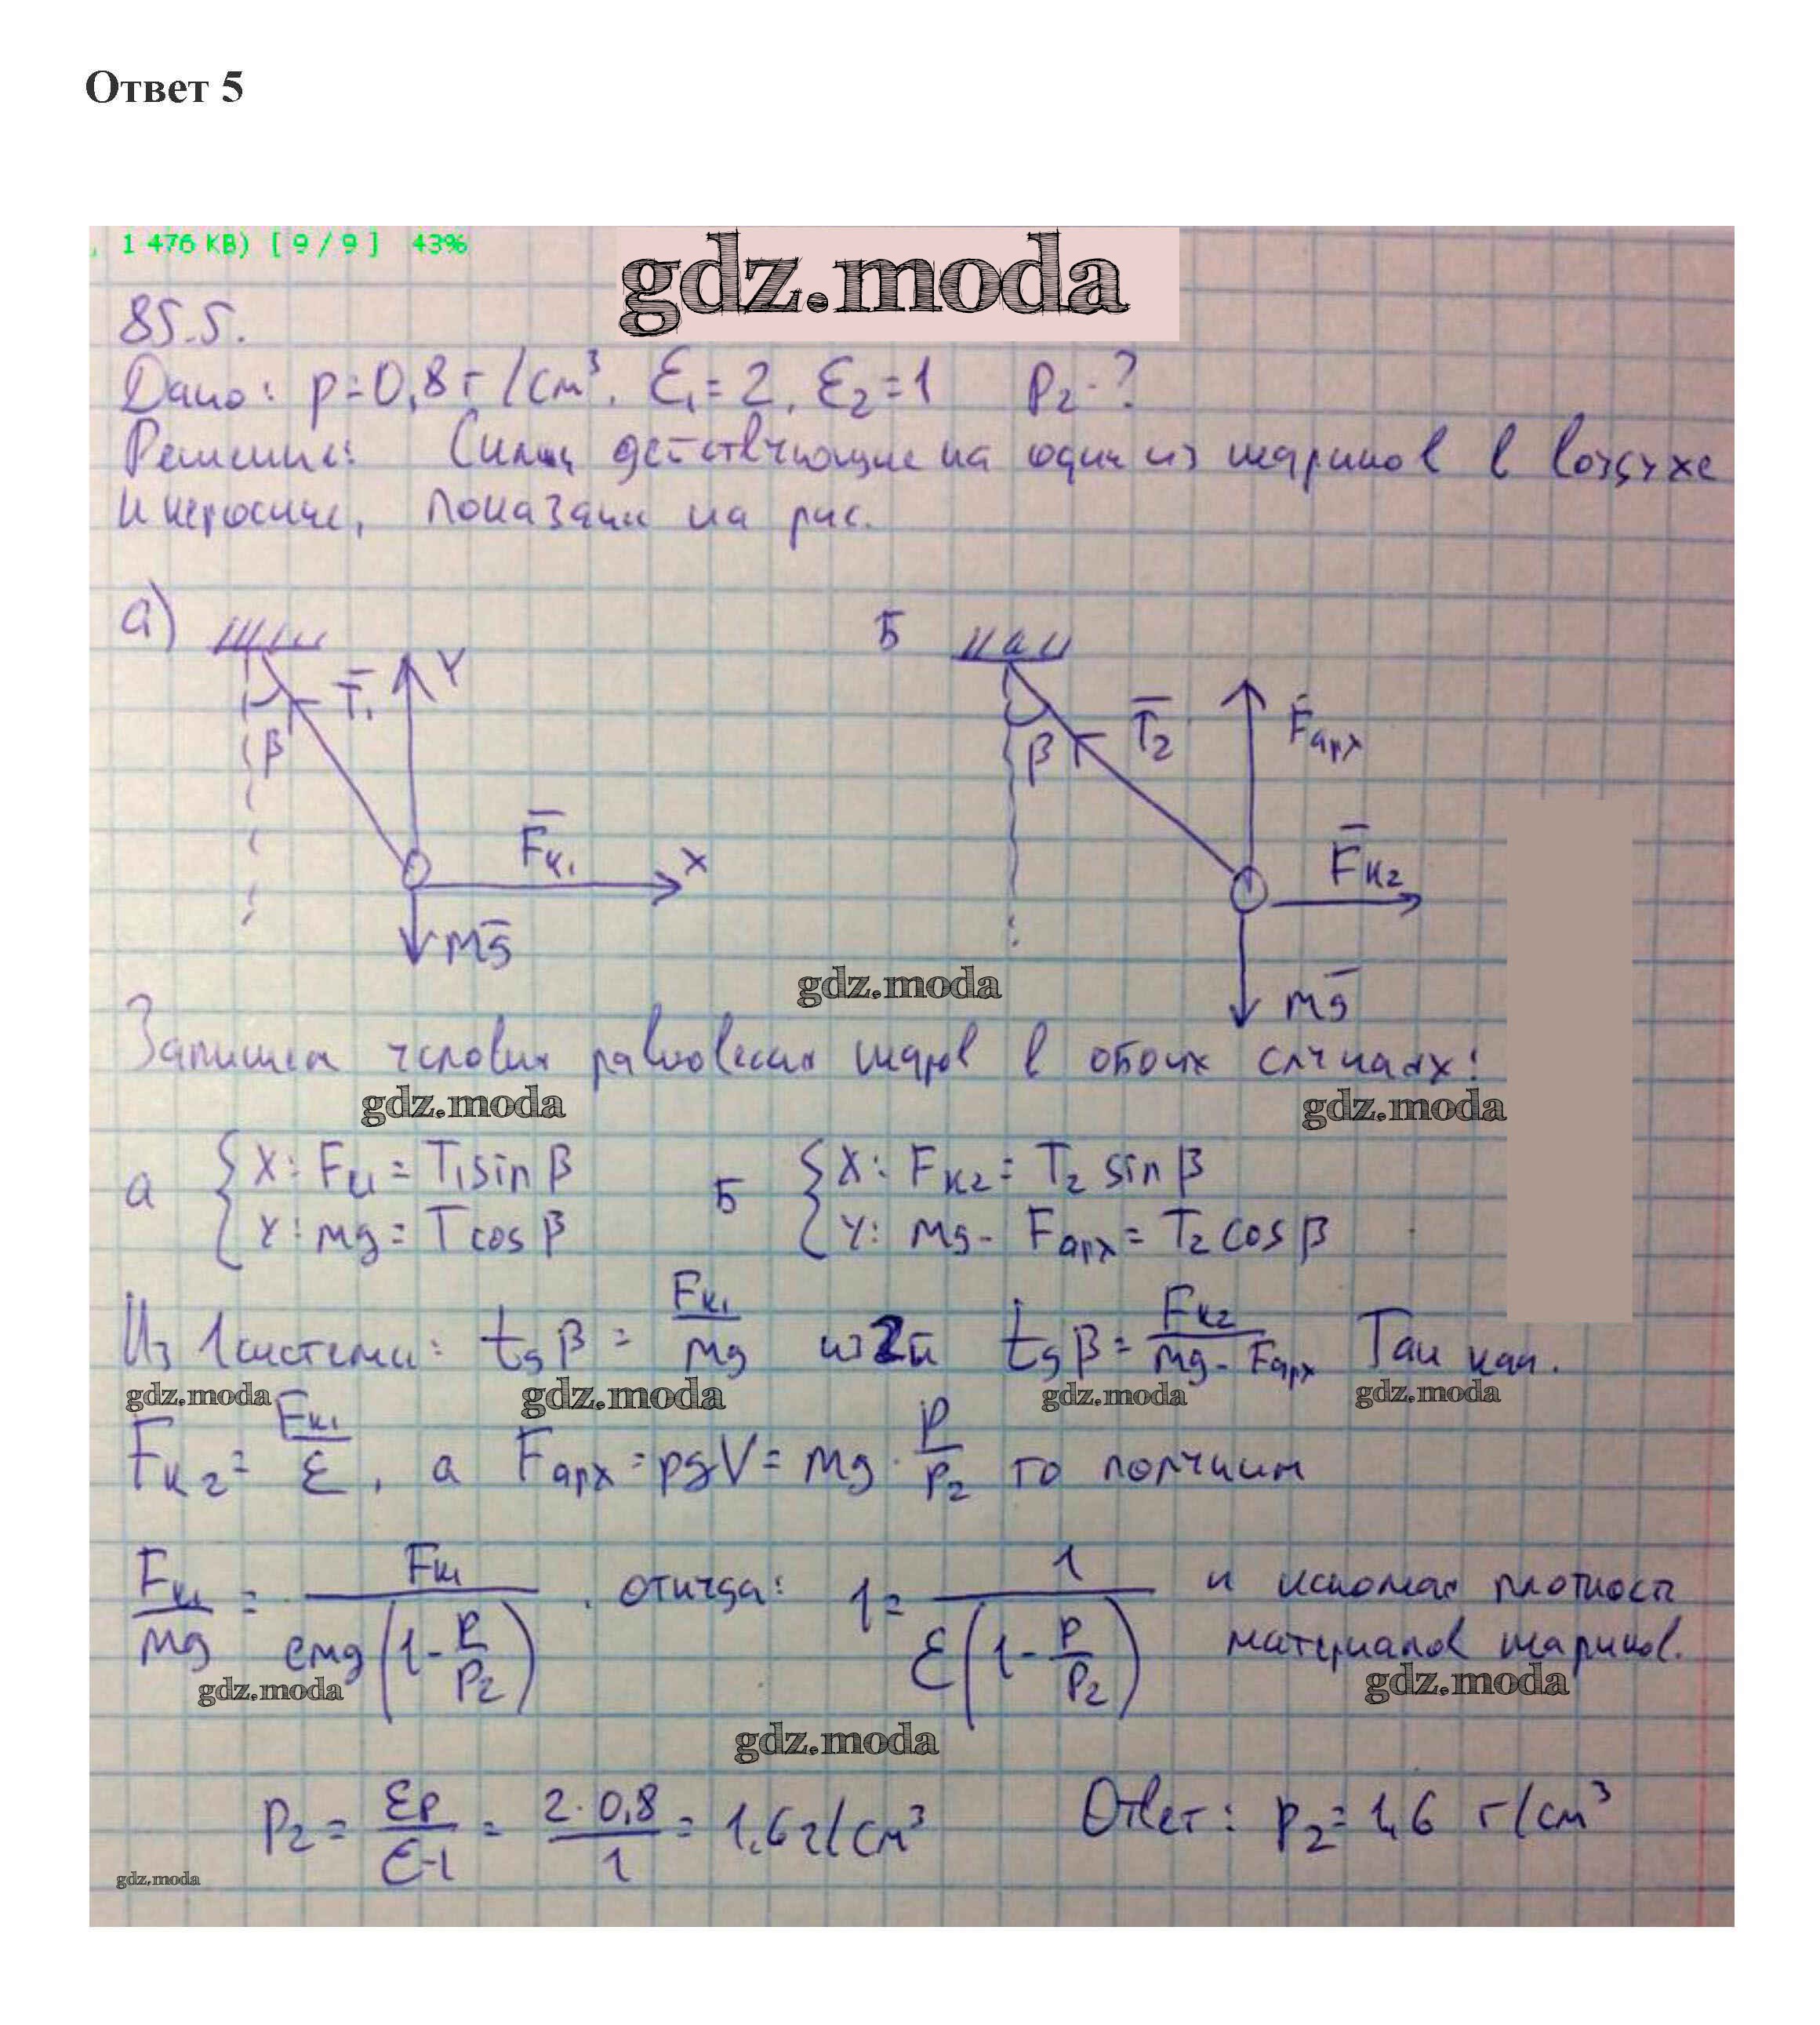 Ответ 5
, 1 476 KB) [ 9 / 9 ] 43%
gdz.moda
85.5.
Дано: ρ=0,8 г/см³, ε₁=2, ε₂=1 ρ₂-?
Решение: Силы действующие на один из шариков в воздухе
и керосине, показаны на рис.
а) Б
T̅₁ Y T̅₂ F̅арх
β β
F̅к₁ X F̅к₂
mg̅ mg̅
gdz.moda
Запишем условия равновесия шаров в обоих случаях:
gdz.moda gdz.moda
а { X: Fк₁ = T₁sin β Б { X: Fк₂ = T₂ sin β
Y: mg = T cos β Y: mg - Fарх = T₂ cos β
Из 1 системы: tg β = Fк₁/mg из 2й tg β = Fк₂/(mg - Fарх) Так как.
gdz.moda gdz.moda gdz.moda gdz.moda
Fк₂ = Fк₁/ε, а Fарх = ρgV = mg · ρ/ρ₂ то получим
Fк₁/mg = Fк₁/(εmg(1 - ρ/ρ₂)). откуда: 1 = 1/(ε(1 - ρ/ρ₂)) и искомая плотность
материалов шариков.
gdz.moda gdz.moda
gdz.moda
ρ₂ = ερ/(ε-1) = 2·0,8/1 = 1,6 г/см³ Ответ: ρ₂ = 1,6 г/см³
gdz.moda